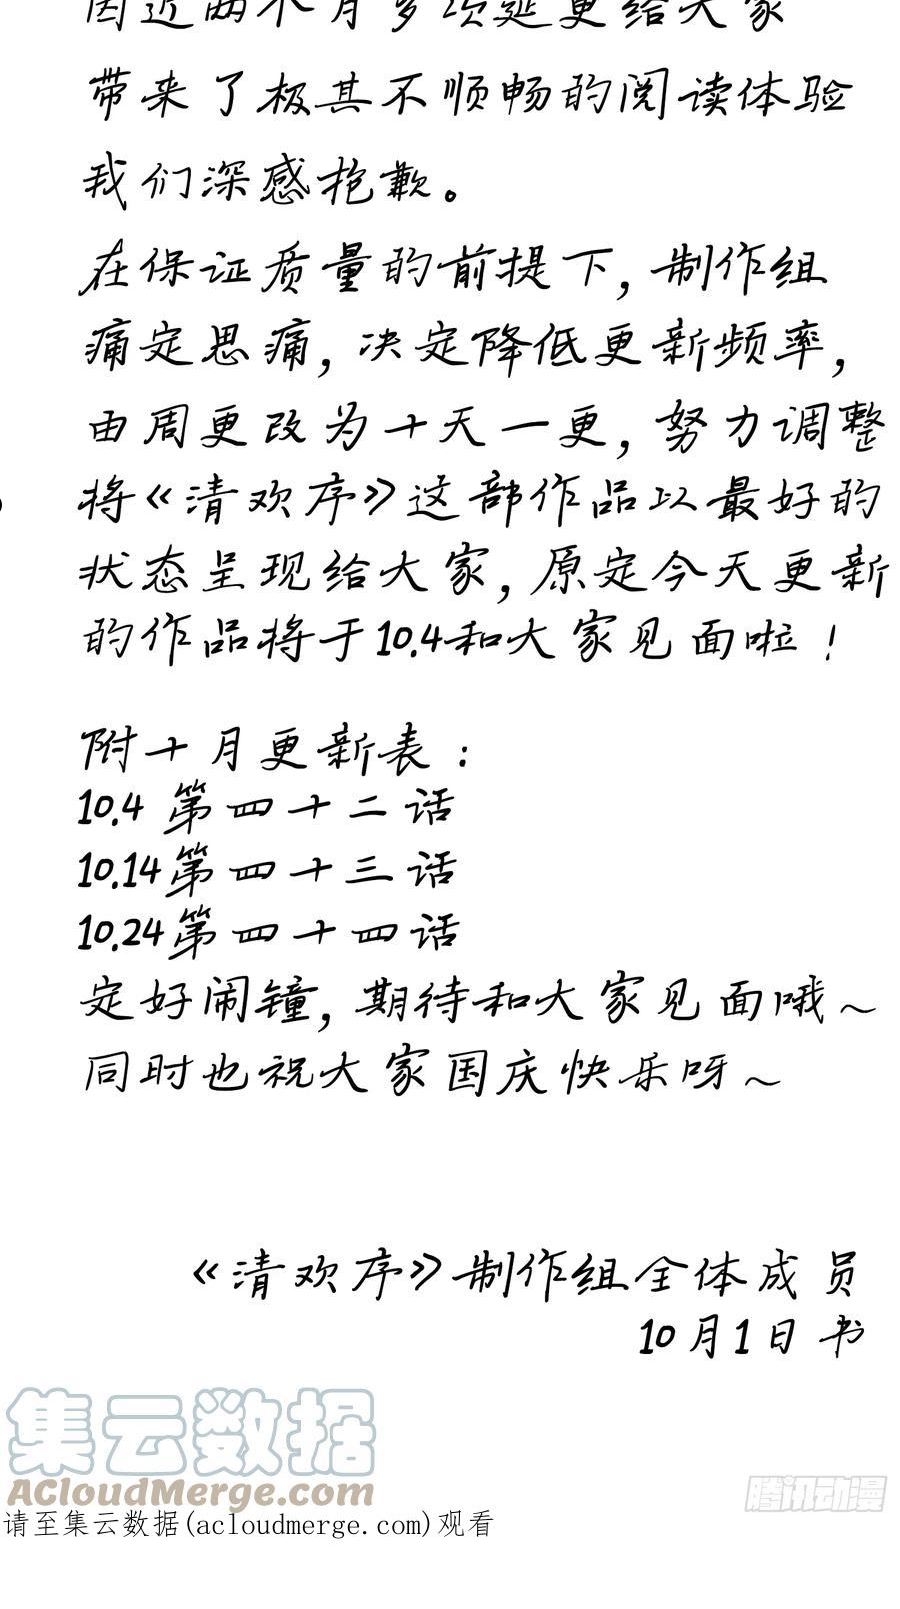 因近两个月多次延更给大家
带来了极其不顺畅的阅读体验
我们深感抱歉。
在保证质量的前提下,制作组
痛定思痛,决定降低更新频率,
由周更改为十天一更,努力调整
将《清欢序》这部作品以最好的
状态呈现给大家,原定今天更新
的作品将于10.4和大家见面啦!
附十月更新表:
10.4 第四十二话
10.14第四十三话
10.24第四十四话
定好闹钟,期待和大家见面哦~
同时也祝大家国庆快乐呀~
《清欢序》制作组全体成员
10月1日 书
集云数据
ACloudMerge.com
腾讯动漫
请至集云数据(acloudmerge.com)观看